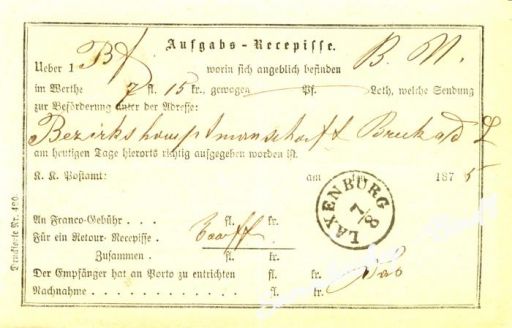 Aufgabs-Recepisse.
Ueber 1 Bf worin sich angeblich befinden B. N.
im Werthe 7 fl. 15 kr., gewogen Pf. Loth, welche Sendung
zur Beförderung unter der Adresse:
Bezirkshauptmannschaft Bruck a/d L
am heutigen Tage hierorts richtig aufgegeben worden ist.
K. K. Postamt: am 1875
LAXENBURG
7/8
An Franco-Gebühr . . . fl. kr.
Für ein Retour-Recepisse . fl. kr.
Zusammen . fl. kr.
Der Empfänger hat an Porto zu entrichten fl. kr.
Nachnahme . . . . . fl. kr.
Drucksorte Nr. 420